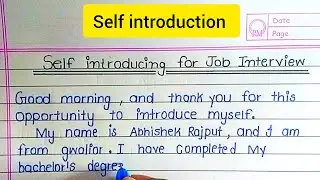 Self introduction
Date
Page
Self introducing for Job Interview
Good morning, and thank you for this
opportunity to introduce myself.
My name is Abhishek Rajput, and I am
from gwalior. I have completed My
bachelor's degree